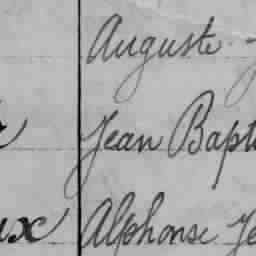 Auguste
Jean Bapt
ux Alphonse Je